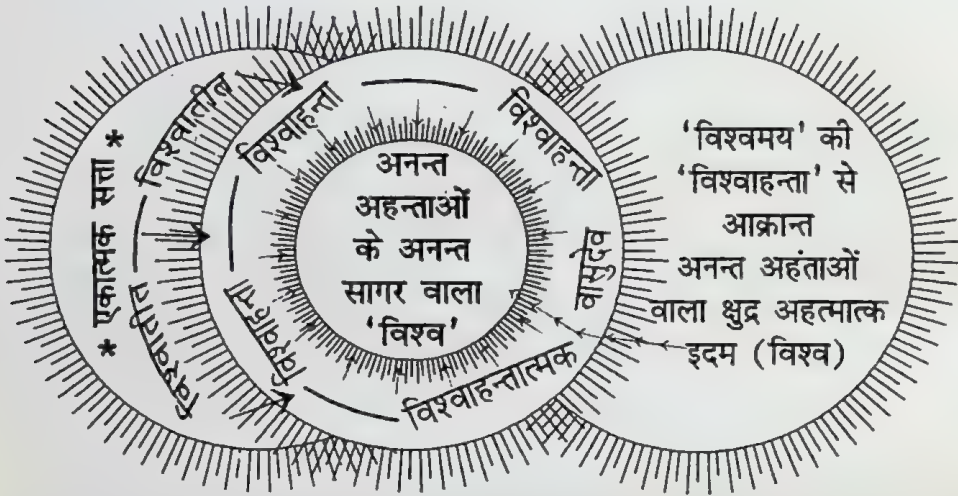 * एकात्मक सत्ता *
विश्वातील
विश्वाती
विश्वाहन्ता
विश्वाहन्ता
विश्वाहन्ता
विश्वाहन्तात्मक
वासुदेव
अनन्त
अहन्ताओं
के अनन्त
सागर वाला
'विश्व'
'विश्वमय' की
'विश्वाहन्ता' से
आक्रान्त
अनन्त अहंताओं
वाला क्षुद्र अहत्मात्क
इदम (विश्व)